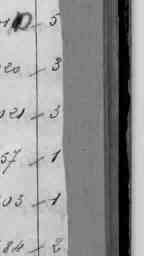 0 - 5
20 - 3
021 - 3
57 - 1
03 - 1
84 - 2